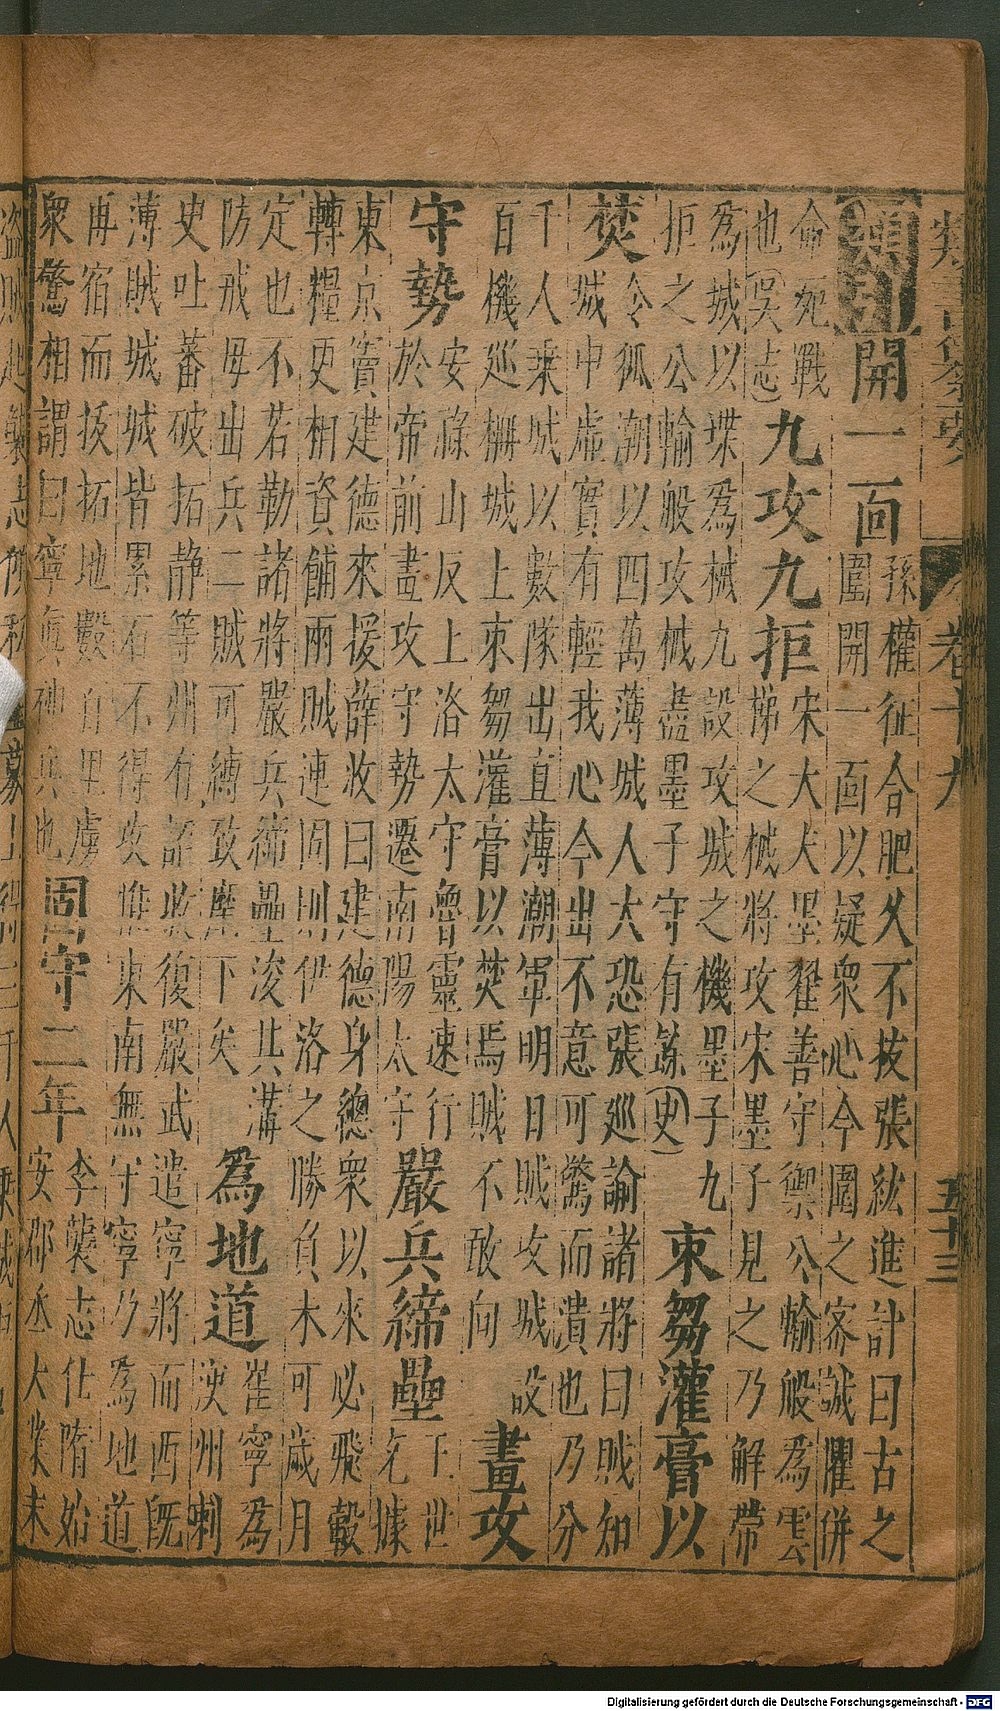 類書纂要 卷十九 五十三
開一面
孫權征合肥久不拔張紘進計曰古之
圍開一面以疑衆心今圍之密誠懼併
命死戰
也(吳志)
九攻九拒
宋大夫墨翟善守禦公輸般為雲
梯之械將攻宋墨子見之乃解帶
爲城以堞爲械九設攻城之機墨子九
拒之公輸般攻械盡墨子守有餘(史)
束芻灌膏以
焚
令狐潮以四萬薄城人大恐張巡諭諸將曰賊知
城中虛實有輕我心今出不意可驚而潰也乃分
千人乗城以數隊出直薄潮軍明日賊攻城設
百機巡柵城上束芻灌膏以焚焉賊不敢向
畫攻
守勢
安祿山反上洛太守魯靈速行
於帝前畫攻守勢遷南陽太守
嚴兵締壘
王世
充據
東京竇建德來援薛收曰建德身總衆以來必飛轂
轉糧更相資餔兩賊連固則伊洛之勝負未可歲月
定也不若勒諸將嚴兵締壘浚其溝
防戒毋出兵二賊可縛致麾下矣
爲地道
崔寧爲
漢州刺
史吐蕃破拓靜等州有詔收復嚴武遣寧將而西旣
薄賊城城皆累石不得攻惟東南無守寧乃爲地道
再宿而拔拓地數百里虜
衆驚相謂曰寧真神兵也
固守二年
李襲志仕隋始
安郡丞大業末
盗賊起襲志
Digitalisierung gefördert durch die Deutsche Forschungsgemeinschaft - DFG